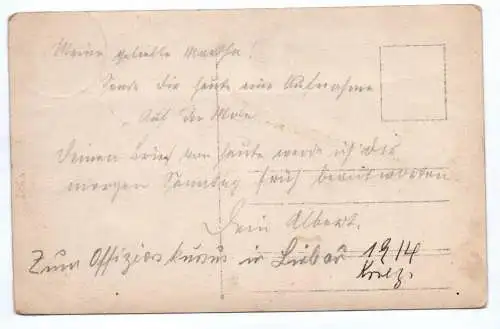 Meine geliebte Martha!
Sende dir heute eine Aufnahme
"Auf der Mole"
Deinen Brief von heute werde ich dir
morgen Sonntag früh beantworten
Dein Albert.
Zum Offizierskursus in Libau 1914